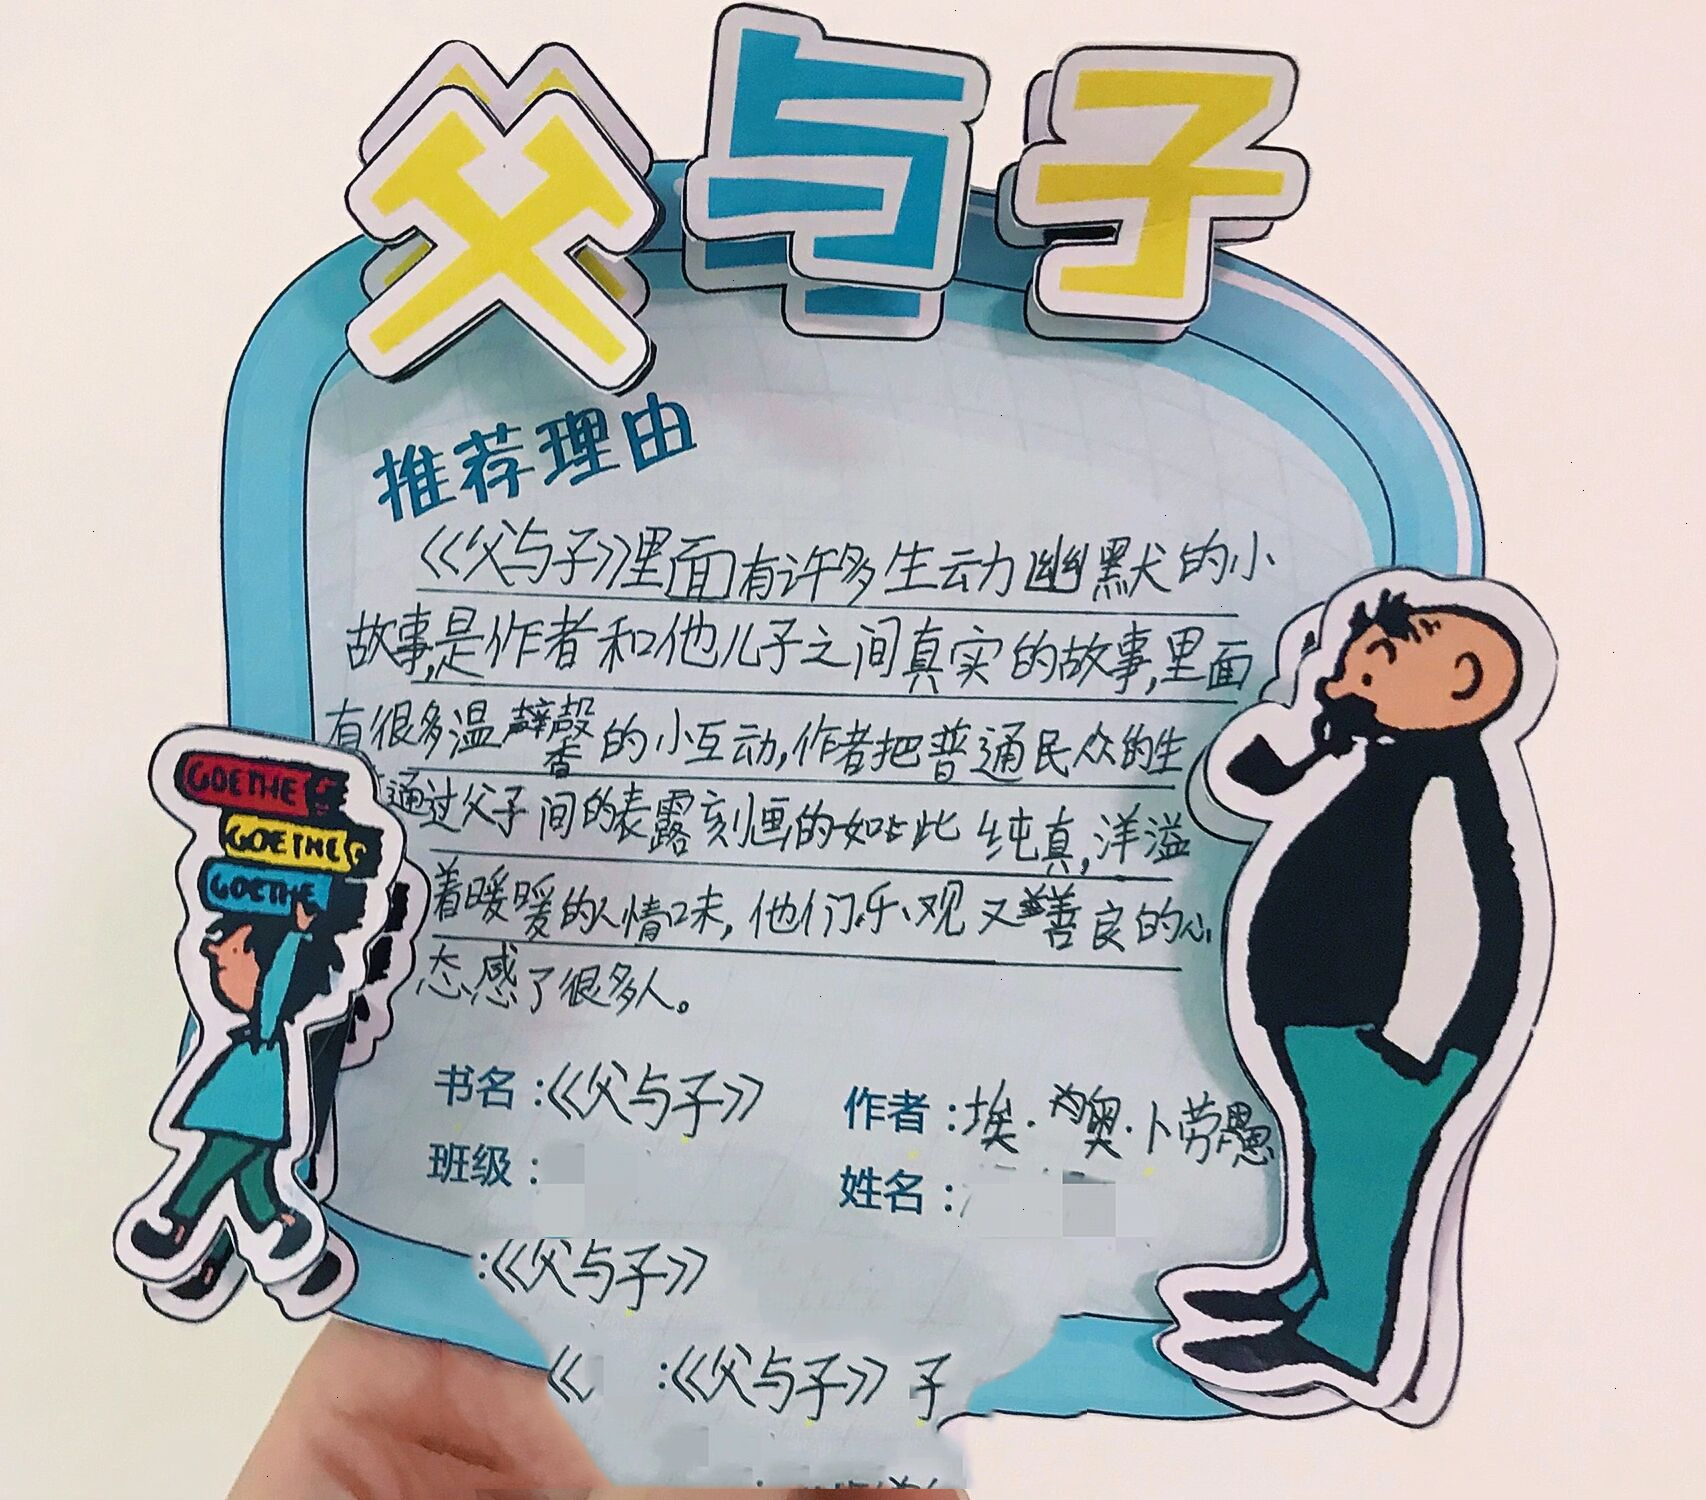 父与子
推荐理由
《父与子》里面有许多生动幽默的小
故事,是作者和他儿子之间真实的故事,里面
有很多温馨的小互动,作者把普通民众的生
通过父子间的表露刻画的如此纯真,洋溢
着暖暖的人情味,他们乐观又善良的心
态感了很多人。
书名:《父与子》 作者:埃·奥·卜劳恩
班级: 姓名:
GOETHE
GOETHE
GOETHE
:《父与子》
《 :《父与子》 子